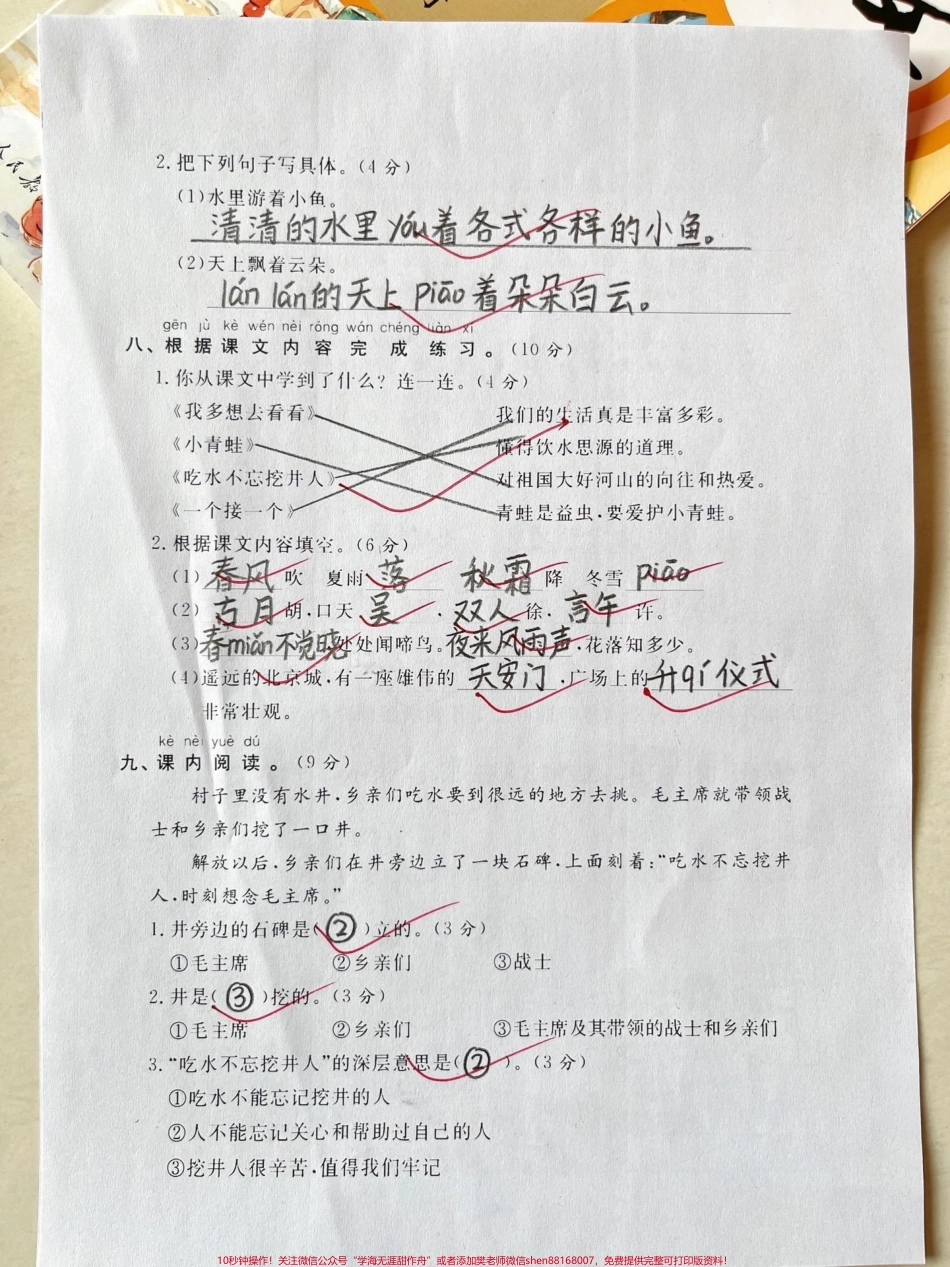 人民教
2.把下列句子写具体。(4分)
(1)水里游着小鱼。
清清的水里yóu着各式各样的小鱼。
(2)天上飘着云朵。
lán lán的天上piāo着朵朵白云。
gēn jù kè wén nèi róng wán chéng liàn xí
八、根据课文内容完成练习。(10分)
1.你从课文中学到了什么?连一连。(4分)
《我多想去看看》 我们的生活真是丰富多彩。
《小青蛙》 懂得饮水思源的道理。
《吃水不忘挖井人》 对祖国大好河山的向往和热爱。
《一个接一个》 青蛙是益虫,要爱护小青蛙。
2.根据课文内容填空。(6分)
(1)春风吹 夏雨落 秋霜降 冬雪piāo
(2)古月胡,口天吴,双人徐,言午许。
(3)春mián不觉晓,处处闻啼鸟。夜来风雨声,花落知多少。
(4)遥远的北京城,有一座雄伟的天安门,广场上的升qí仪式
非常壮观。
kè nèi yuè dú
九、课内阅读。(9分)
村子里没有水井,乡亲们吃水要到很远的地方去挑。毛主席就带领战
士和乡亲们挖了一口井。
解放以后,乡亲们在井旁边立了一块石碑,上面刻着:“吃水不忘挖井
人,时刻想念毛主席。”
1.井旁边的石碑是(②)立的。(3分)
①毛主席 ②乡亲们 ③战士
2.井是(③)挖的。(3分)
①毛主席 ②乡亲们 ③毛主席及其带领的战士和乡亲们
3.“吃水不忘挖井人”的深层意思是(②)。(3分)
①吃水不能忘记挖井的人
②人不能忘记关心和帮助过自己的人
③挖井人很辛苦,值得我们牢记
10秒钟操作!关注微信公众号“学海无涯甜作舟”或者添加樊老师微信shen88168007,免费提供完整可打印版资料!